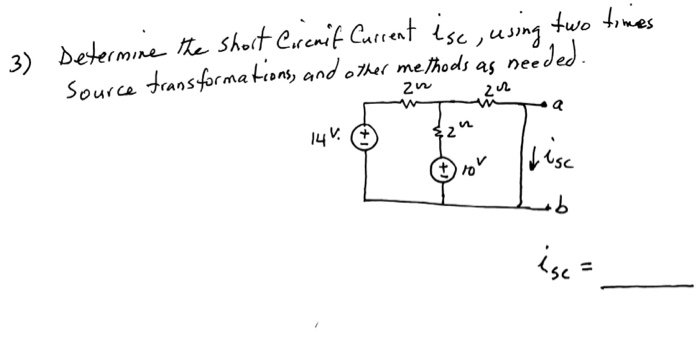 3) Determine the short Circuit Current isc, using two times
Source transformations, and other methods as needed.
2Ω 2Ω
a
14 V. + 2Ω
↓ isc
+ 10 V
b
isc = ____